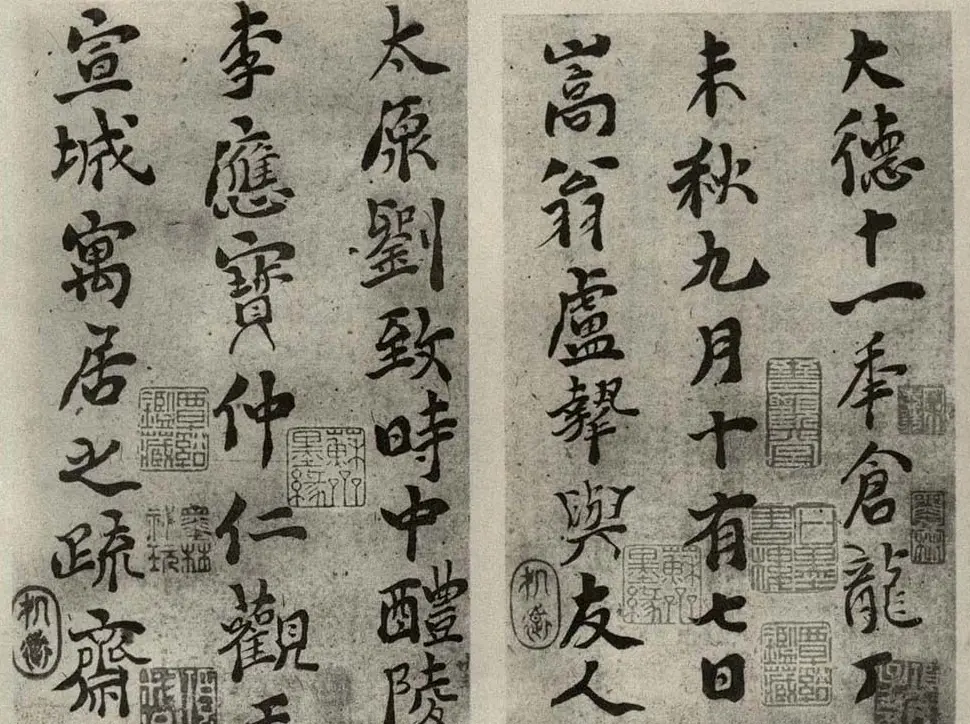 大德十一年倉龍丁
未秋九月十有七日
嵩翁盧摯與友人
太原劉致時中醴陵
李應實仲仁觀于
宣城寓居之疏齋
覃谿鑑藏
覃谿鑑藏